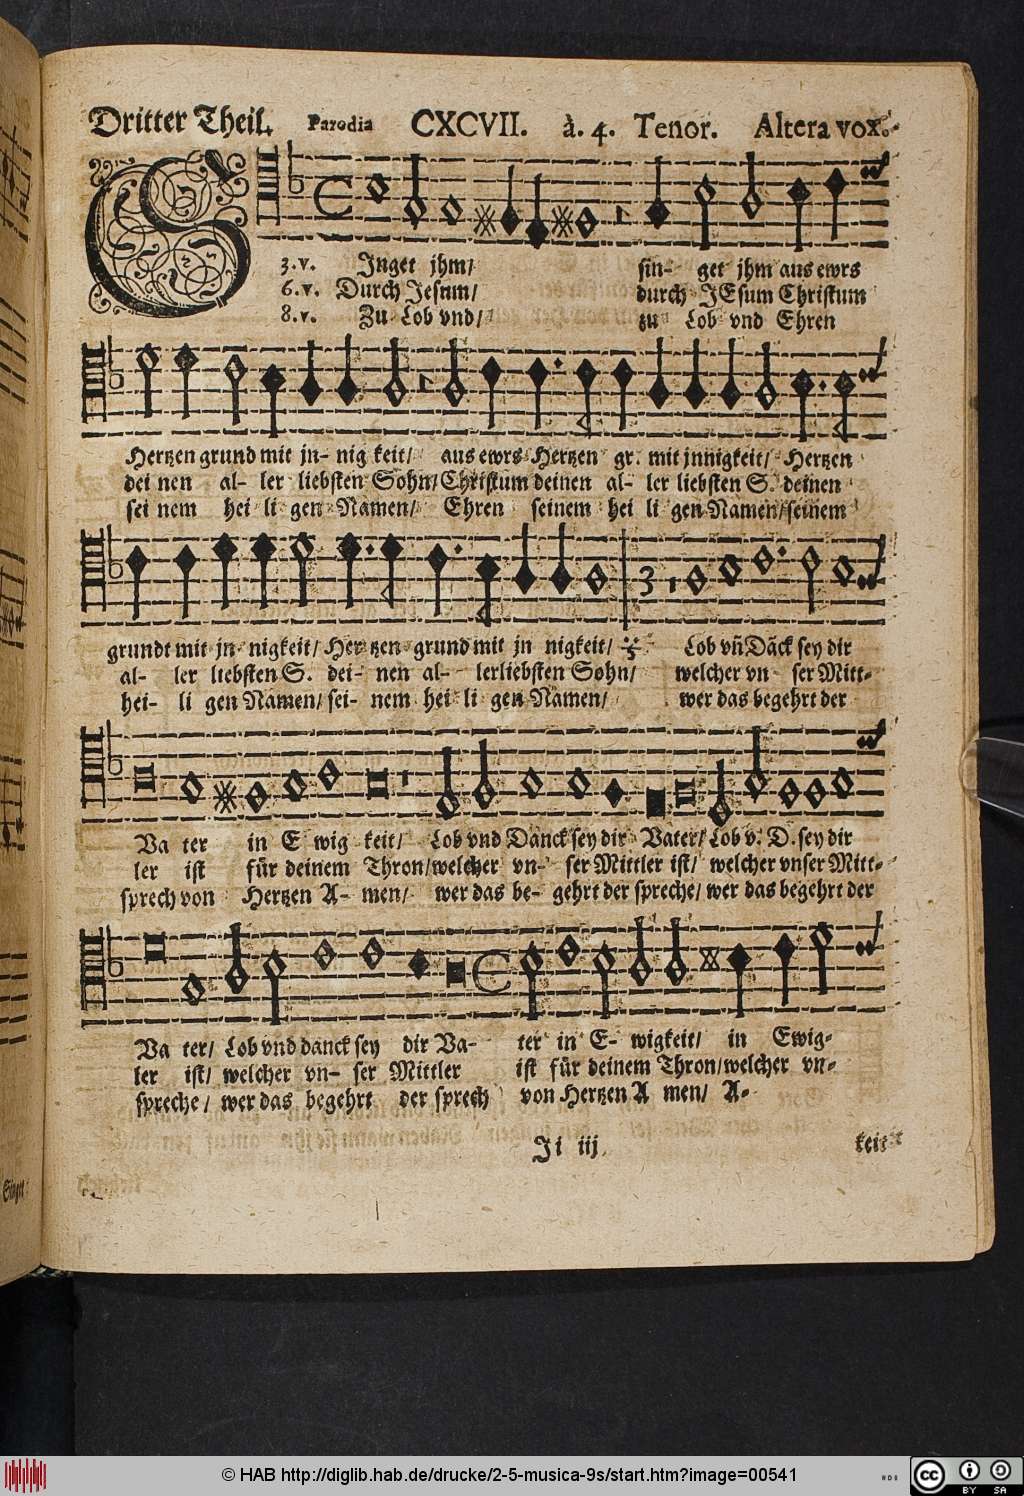 Dritter Theil. Parodia CXCVII. à. 4. Tenor. Altera vox.
S
3. v. Jnget jhm/ sin- get jhm aus ewrs
6. v. Durch Jesum/ durch JEsum Christum
8. v. Zu Lob vnd/ zu Lob vnd Ehren
Hertzen grund mit jn- nig keit/ aus ewrs Hertzen gr. mit jnnigkeit/ Hertzen
dei nen al- ler liebsten Sohn/ Christum deinen al- ler liebsten S. deinen
sei nem hei li gen Namen/ Ehren seinem hei li gen Namen/ seinem
grundt mit jn- nigkeit/ Her- tzen grund mit jn nigkeit/ Lob vñ Däck sey dir
al- ler liebsten S. dei- nen al- lerliebsten Sohn/ welcher vn- ser Mitt-
hei- li gen Namen/ sei- nem hei li gen Namen/ wer das begehrt der
3
Va ter in E wig keit/ Lob vnd Danck sey dir Vater/ Lob v. D. sey dir
ler ist für deinem Thron/ welcher vn- ser Mittler ist/ welcher vnser Mitt-
sprech von Hertzen A- men/ wer das be- gehrt der spreche/ wer das begehrt der
Va ter/ Lob vnd danck sey dir Va- ter in E- wigkeit/ in Ewig-
ler ist/ welcher vn- ser Mittler ist für deinem Thron/ welcher vn-
spreche/ wer das begehrt der sprech von Hertzen A men/ A-
Ji iij keit
© HAB http://diglib.hab.de/drucke/2-5-musica-9s/start.htm?image=00541
cc BY SA